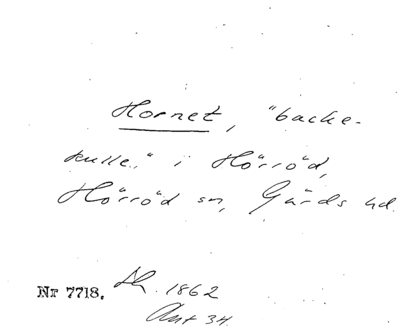 Hornet, "backe-
kulle." i Hörröd,
Hörröd sn, Gärds hd.
Nr 7718. 1862
Ant 34.